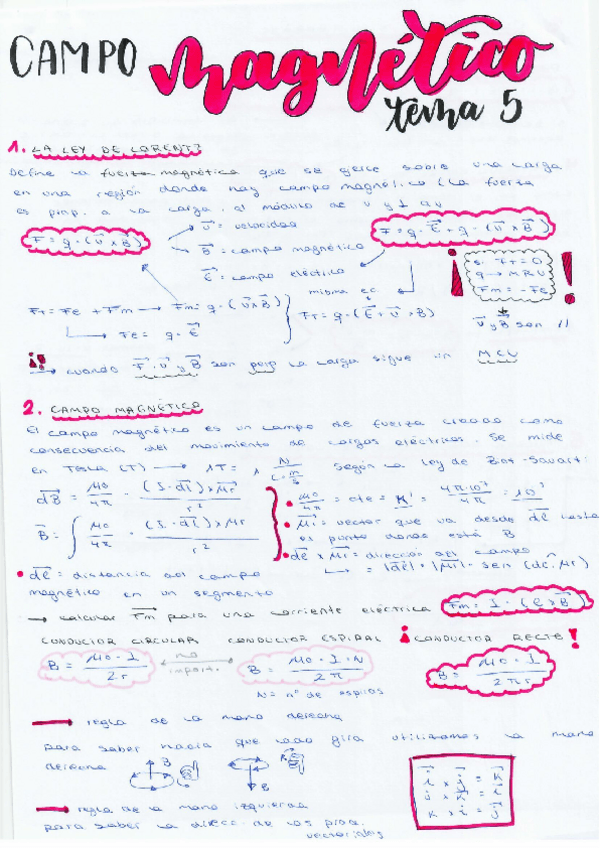 CAMPO magnético
tema 5
1. LA LEY DE LORENTZ
Define la fuerza magnética que se ejerce sobre una carga
en una región donde hay campo magnético (La fuerza
es prop. a la carga, al módulo de v y ⊥ a v
F = q · (v⃗ x B⃗)
v⃗ = velocidad
B⃗ = campo magnético
E⃗ = campo eléctrico
F = q · E⃗ + q · (v⃗ x B⃗)
si FT = 0
q → MRU
Fm = - Fe
misma ec.
v⃗ y B⃗ son //
FT = Fe + Fm → Fm = q · (v⃗ x B⃗)
Fe = q · E⃗
FT = q · (E⃗ + v⃗ x B⃗)
cuando F⃗, v⃗ y B⃗ son perp la carga sigue un MCU
2. CAMPO MAGNÉTICO
El campo magnético es un campo de fuerza creado como
consecuencia del movimiento de cargas eléctricas. Se mide
en Tesla (T) → 1T = 1 N / C · m/s Según la ley de Biot-Savart:
dB⃗ = μo / 4π · (I · dl⃗) x μr⃗ / r²
B⃗ = ∫ μo / 4π · (I · dl⃗) x μr / r²
• μo / 4π = cte = K' = 4π·10⁻⁷ / 4π = 10⁻⁷
• μr⃗ = vector que va desde dl⃗ hasta
el punto donde está B
• dl⃗ x μr⃗ = dirección del campo
↳ = |dl⃗| · |μr⃗| · sen (dl, μr)
• dl⃗ = distancia del campo
magnético en un segmento
→ calcular Fm⃗ para una corriente eléctrica Fm = I · (l x B⃗)
CONDUCTOR CIRCULAR CONDUCTOR ESPIRAL ¡CONDUCTOR RECTO!
B = μo · I / 2r
no import.
B = μo · I · N / 2r
B = μo · I / 2πr
N = nº de espiras
regla de la mano derecha
para saber hacia que lado gira utilizamos la mano
derecha
B
B
i⃗ x j⃗ = k⃗
j x k⃗ = i⃗
k x i = j⃗
regla de la mano izquierda
para saber la direcc. de los prod.
vectoriales